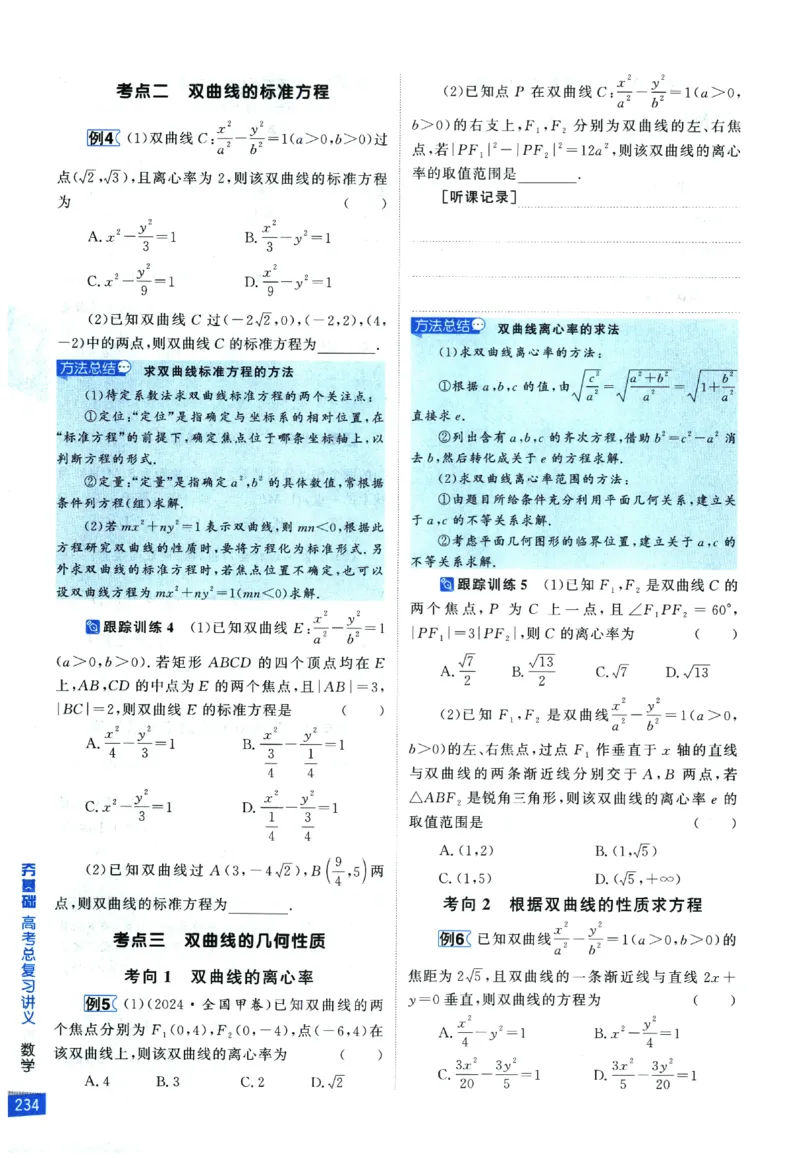 考点二 双曲线的标准方程
例4 (1)双曲线 C:x²/a²-y²/b²=1(a>0,b>0)过
点(√2,√3),且离心率为 2,则该双曲线的标准方程
为 ( )
A.x²-y²/3=1 B.x²/3-y²=1
C.x²-y²/9=1 D.x²/9-y²=1
(2)已知双曲线 C 过(-2√2,0),(-2,2),(4,
-2)中的两点,则双曲线 C 的标准方程为________.
方法总结 求双曲线标准方程的方法
(1)待定系数法求双曲线标准方程的两个关注点:
①定位:“定位”是指确定与坐标系的相对位置,在
“标准方程”的前提下,确定焦点位于哪条坐标轴上,以
判断方程的形式.
②定量:“定量”是指确定a²,b²的具体数值,常根据
条件列方程(组)求解.
(2)若mx²+ny²=1表示双曲线,则mn<0,根据此
方程研究双曲线的性质时,要将方程化为标准形式.另
外求双曲线的标准方程时,若焦点位置不确定,也可以
设双曲线方程为mx²+ny²=1(mn<0)求解.
跟踪训练 4 (1)已知双曲线 E:x²/a²-y²/b²=1
(a>0,b>0).若矩形 ABCD 的四个顶点均在 E
上,AB,CD 的中点为 E 的两个焦点,且|AB|=3,
|BC|=2,则双曲线 E 的标准方程是 ( )
A.x²/4-y²/3=1 B.x²/(3/4)-y²/(1/4)=1
C.x²-y²/3=1 D.x²/(1/4)-y²/(3/4)=1
(2)已知双曲线过 A(3,-4√2),B(9/4,5)两
点,则双曲线的标准方程为________.
考点三 双曲线的几何性质
考向 1 双曲线的离心率
例5 (1)(2024·全国甲卷)已知双曲线的两
个焦点分别为 F₁(0,4),F₂(0,-4),点(-6,4)在
该双曲线上,则该双曲线的离心率为 ( )
A.4 B.3 C.2 D.√2
(2)已知点 P 在双曲线 C:x²/a²-y²/b²=1(a>0,
b>0)的右支上,F₁,F₂ 分别为双曲线的左、右焦
点,若|PF₁|²-|PF₂|²=12a²,则该双曲线的离心
率的取值范围是________.
[听课记录]
方法总结 双曲线离心率的求法
(1)求双曲线离心率的方法:
①根据a,b,c的值,由√(c²/a²)=√((a²+b²)/a²)=√(1+b²/a²)
直接求e.
②列出含有a,b,c的齐次方程,借助b²=c²-a²消
去b,然后转化成关于e的方程求解.
(2)求双曲线离心率范围的方法:
①由题目所给条件充分利用平面几何关系,建立关
于a,c的不等关系求解.
②考虑平面几何图形的临界位置,建立关于a,c的
不等关系求解.
跟踪训练 5 (1)已知 F₁,F₂ 是双曲线 C 的
两个焦点,P 为 C 上一点,且∠F₁PF₂=60°,
|PF₁|=3|PF₂|,则 C 的离心率为 ( )
A.√7/2 B.√13/2 C.√7 D.√13
(2)已知 F₁,F₂ 是双曲线x²/a²-y²/b²=1(a>0,
b>0)的左、右焦点,过点 F₁ 作垂直于 x 轴的直线
与双曲线的两条渐近线分别交于 A,B 两点,若
△ABF₂ 是锐角三角形,则该双曲线的离心率 e 的
取值范围是 ( )
A.(1,2) B.(1,√5)
C.(1,5) D.(√5,+∞)
考向 2 根据双曲线的性质求方程
例6 已知双曲线x²/a²-y²/b²=1(a>0,b>0)的
焦距为 2√5,且双曲线的一条渐近线与直线 2x+
y=0 垂直,则双曲线的方程为 ( )
A.x²/4-y²=1 B.x²-y²/4=1
C.3x²/20-3y²/5=1 D.3x²/5-3y²/20=1
夯基础 高考总复习讲义 数学
234